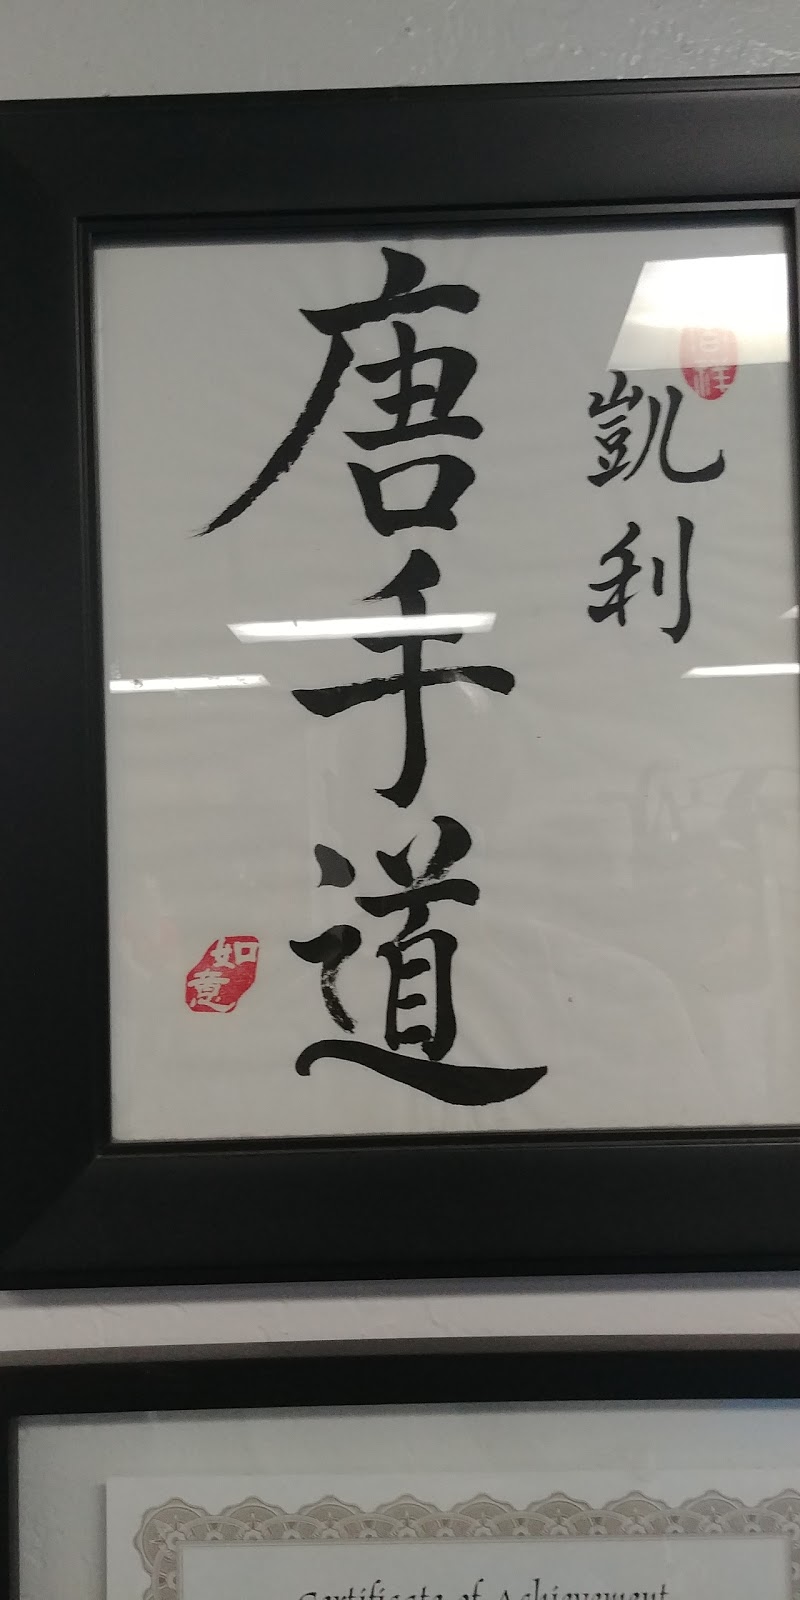 凱利
唐手道
如意
Certificate of Achievement